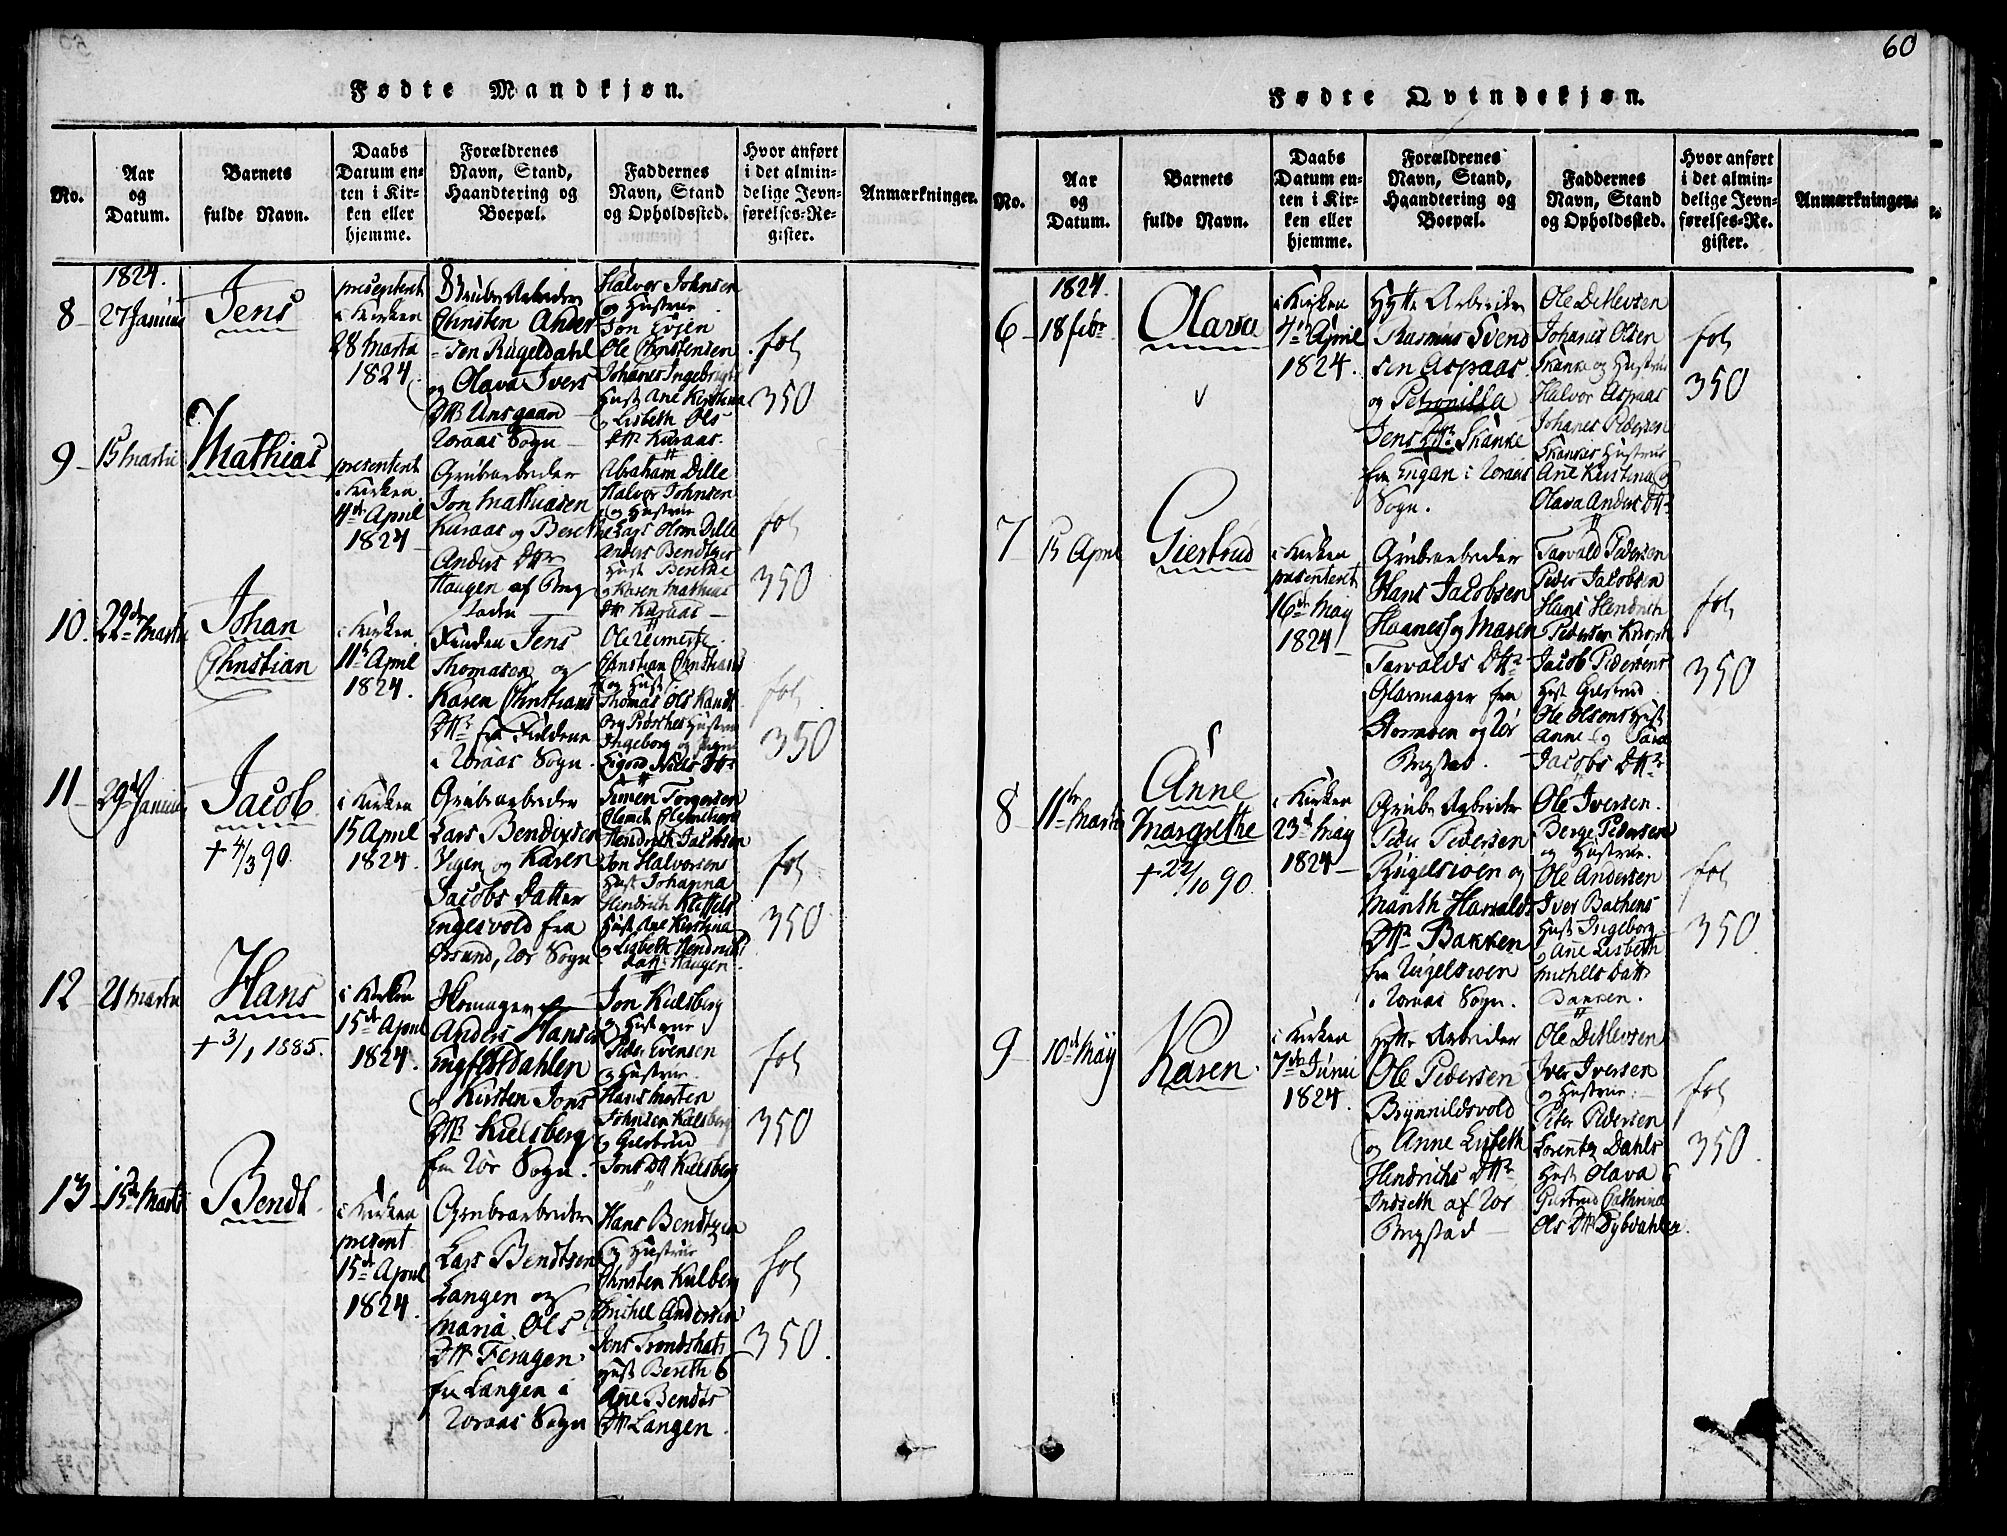 60
Fødte Mandkjøn.
No.
Aar
og
Datum.
Barnets
fulde Navn.
Daabs
Datum en-
ten i Kir-
ken eller
hjemme.
Forældrenes
Navn, Stand,
Haandtering og
Boepæl.
Faddernes
Navn, Stand
og Opholdssted.
Hvor anført
i det almin-
delige Jevn-
førelses-Re-
gister.
Anmærkninger.
1824.
8
27 Januar
Jens
presenteret
i Kirken
28 Martii
1824
Grube Arbeider
Christen Ander
sen Rugeldahl
og Olava Ivers
Dttr
Røraas Sogn
Halvor Johnsen
og Hustrue
Jon Evjen
Ole Christensen
Johanes Ingebrigts
Hust Ane Kirstina
Lisbeth Ols
Dttr Kuraas.
fol
350
9
15 Martii
Mathias
presenteret
i Kirken
4de April
1824
Grubearbeider
Jon Mathiasen
Kuraas og Bereth
Anders Dttr
Haugen af
Abraham Dille
Halvor Johnsen
og Hustrue
Lars Olsen Dille
Anders Bendtzens
Hust Berethe
Karen Mathias
Dttr Kuraas
fol
350
10.
22de Martii
Johan
Christian
i Kirken
11te April
1824.
Jens
Thomasen og
Karen Christians
Dttr fra
i Røraas Sogn.
Christian Christians
og Hust
Thomas Ols
Hustrue
Ingeborg og
Sigrid Niels Dttr
fol
350
11
29de Januar
Jacob.
+ 4/3 90.
i Kirken
15 April
1824
Grubearbeider
Lars Bendixsen
Vigen og Karen
Jacobs Datter
Engesvold fra
Brund, Rør Sogn
Simen Torgersen
Hendrich Jacobsen
Jon Halvorsens
Hust Johanna
Hindrich Kittels
Hust Ane Kirstina
og Lisbeth Hendrichs
Datt Haugen.
fol
350
12
21 Martii
Hans
+ 3/1 1885.
i Kirken
15de April
1824.
Anders Hansen
og Kirsten Jons
Dttr Kulsberg
fra Rør Sogn.
Jon Kulsberg
og Hustrue
Peder Evensen
og Hustrue.
Hans Morten
Johnsen Kulsberg
og Giertrud
Jons Dtt Kulsberg
fol
350
13
15de Martii
Bendt
i Kirken
present
15de April
1824.
Grubearbeider
Lars Bendtsen
Langen og
Maria Ols
Dttr Feragen
fra Langen i
Røraas Sogn
Hans Bendtzen
og Hustrue
Christen Kulberg
Michel Andersen
Jens Trondshats
Hust Bereth
Ane Bendts
Dttr Langen.
fol
350.
Fødte Qvindekjøn.
No.
Aar
og
Datum.
Barnets
fulde Navn.
Daabs
Datum en-
ten i Kir-
ken eller
hjemme.
Forældrenes
Navn, Stand,
Haandtering og
Boepæl.
Faddernes
Navn, Stand
og Opholdssted.
Hvor anført
i det almin-
delige Jevn-
førelses-Re-
gister.
Anmærkninger.
1824.
6
18 Febr
Olava
i Kirken
4de April
1824.
Hytte Arbeider
Rasmus Svend
sen Aspaas.
og Petronilla
Jens Dttr Skanke
fra Engan i Røraas
Sogn.
Ole Ditlevsen
Johanes Olsen
Skanke og Hustrue
Halvor Aspaas
Johanes Pedersen
Skankes Hustrue
Ane Kirstina og
Olava Anders Dttr
fol
350
7
15 April
Giertrud
i Kirken
presenteret
16de May
1824
Grubearbeider
Hans Jacobsen
Haanes og Maren
Tarvalds Dttr
Glasmager fra
og Rør
Bergstad.
Tarvald Pedersen
Peder Jacobsen
Hans Hendrich
Pedersen
Jacob Pedersens
Hust Giertrud
Ole Olsens Hust
Anne og
Jacobs Dttr
fol
350
8
11te Martii
Anne
Margrethe
+ 22/10 90.
i Kirken
23de May
1824
Grube Arbeider
Peder Pedersen
Rugelsioen og
Marith Harvalds
Dttr Bakken
fra Rugelsioen
i Røraas Sogn.
Ole Iversen.
Berge Pedersen
og Hustrue.
Ole Andersen
Iver Bachens
Hust Ingeborg
Ane Lisbeth
Michills Datt
fol
350
9
10de May
Karen
i Kirken
7de Junii
1824.
Hytte Arbeider
Ole Pedersen
Brynnildsvold
og Anne Lisbeth
Hendrichs Dttr
Indseth af Rør
Bergstad
Ole Ditlevsen
Iver Iversen
og Hustrue.
Peter Pedersen
Lorentz Dahls
Hust Olava
Giertrud Cathrina
Ols Dttr Dybdahlen.
fol
350